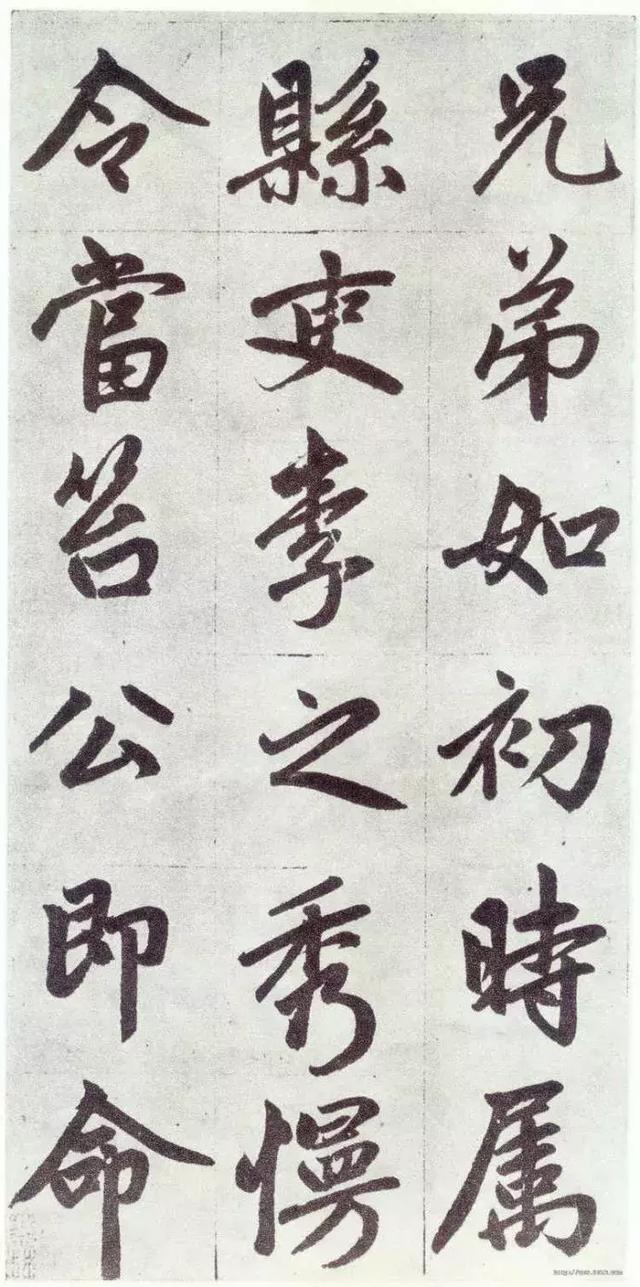 兄弟如初時属
縣吏李之秀慢
令當笞公即命